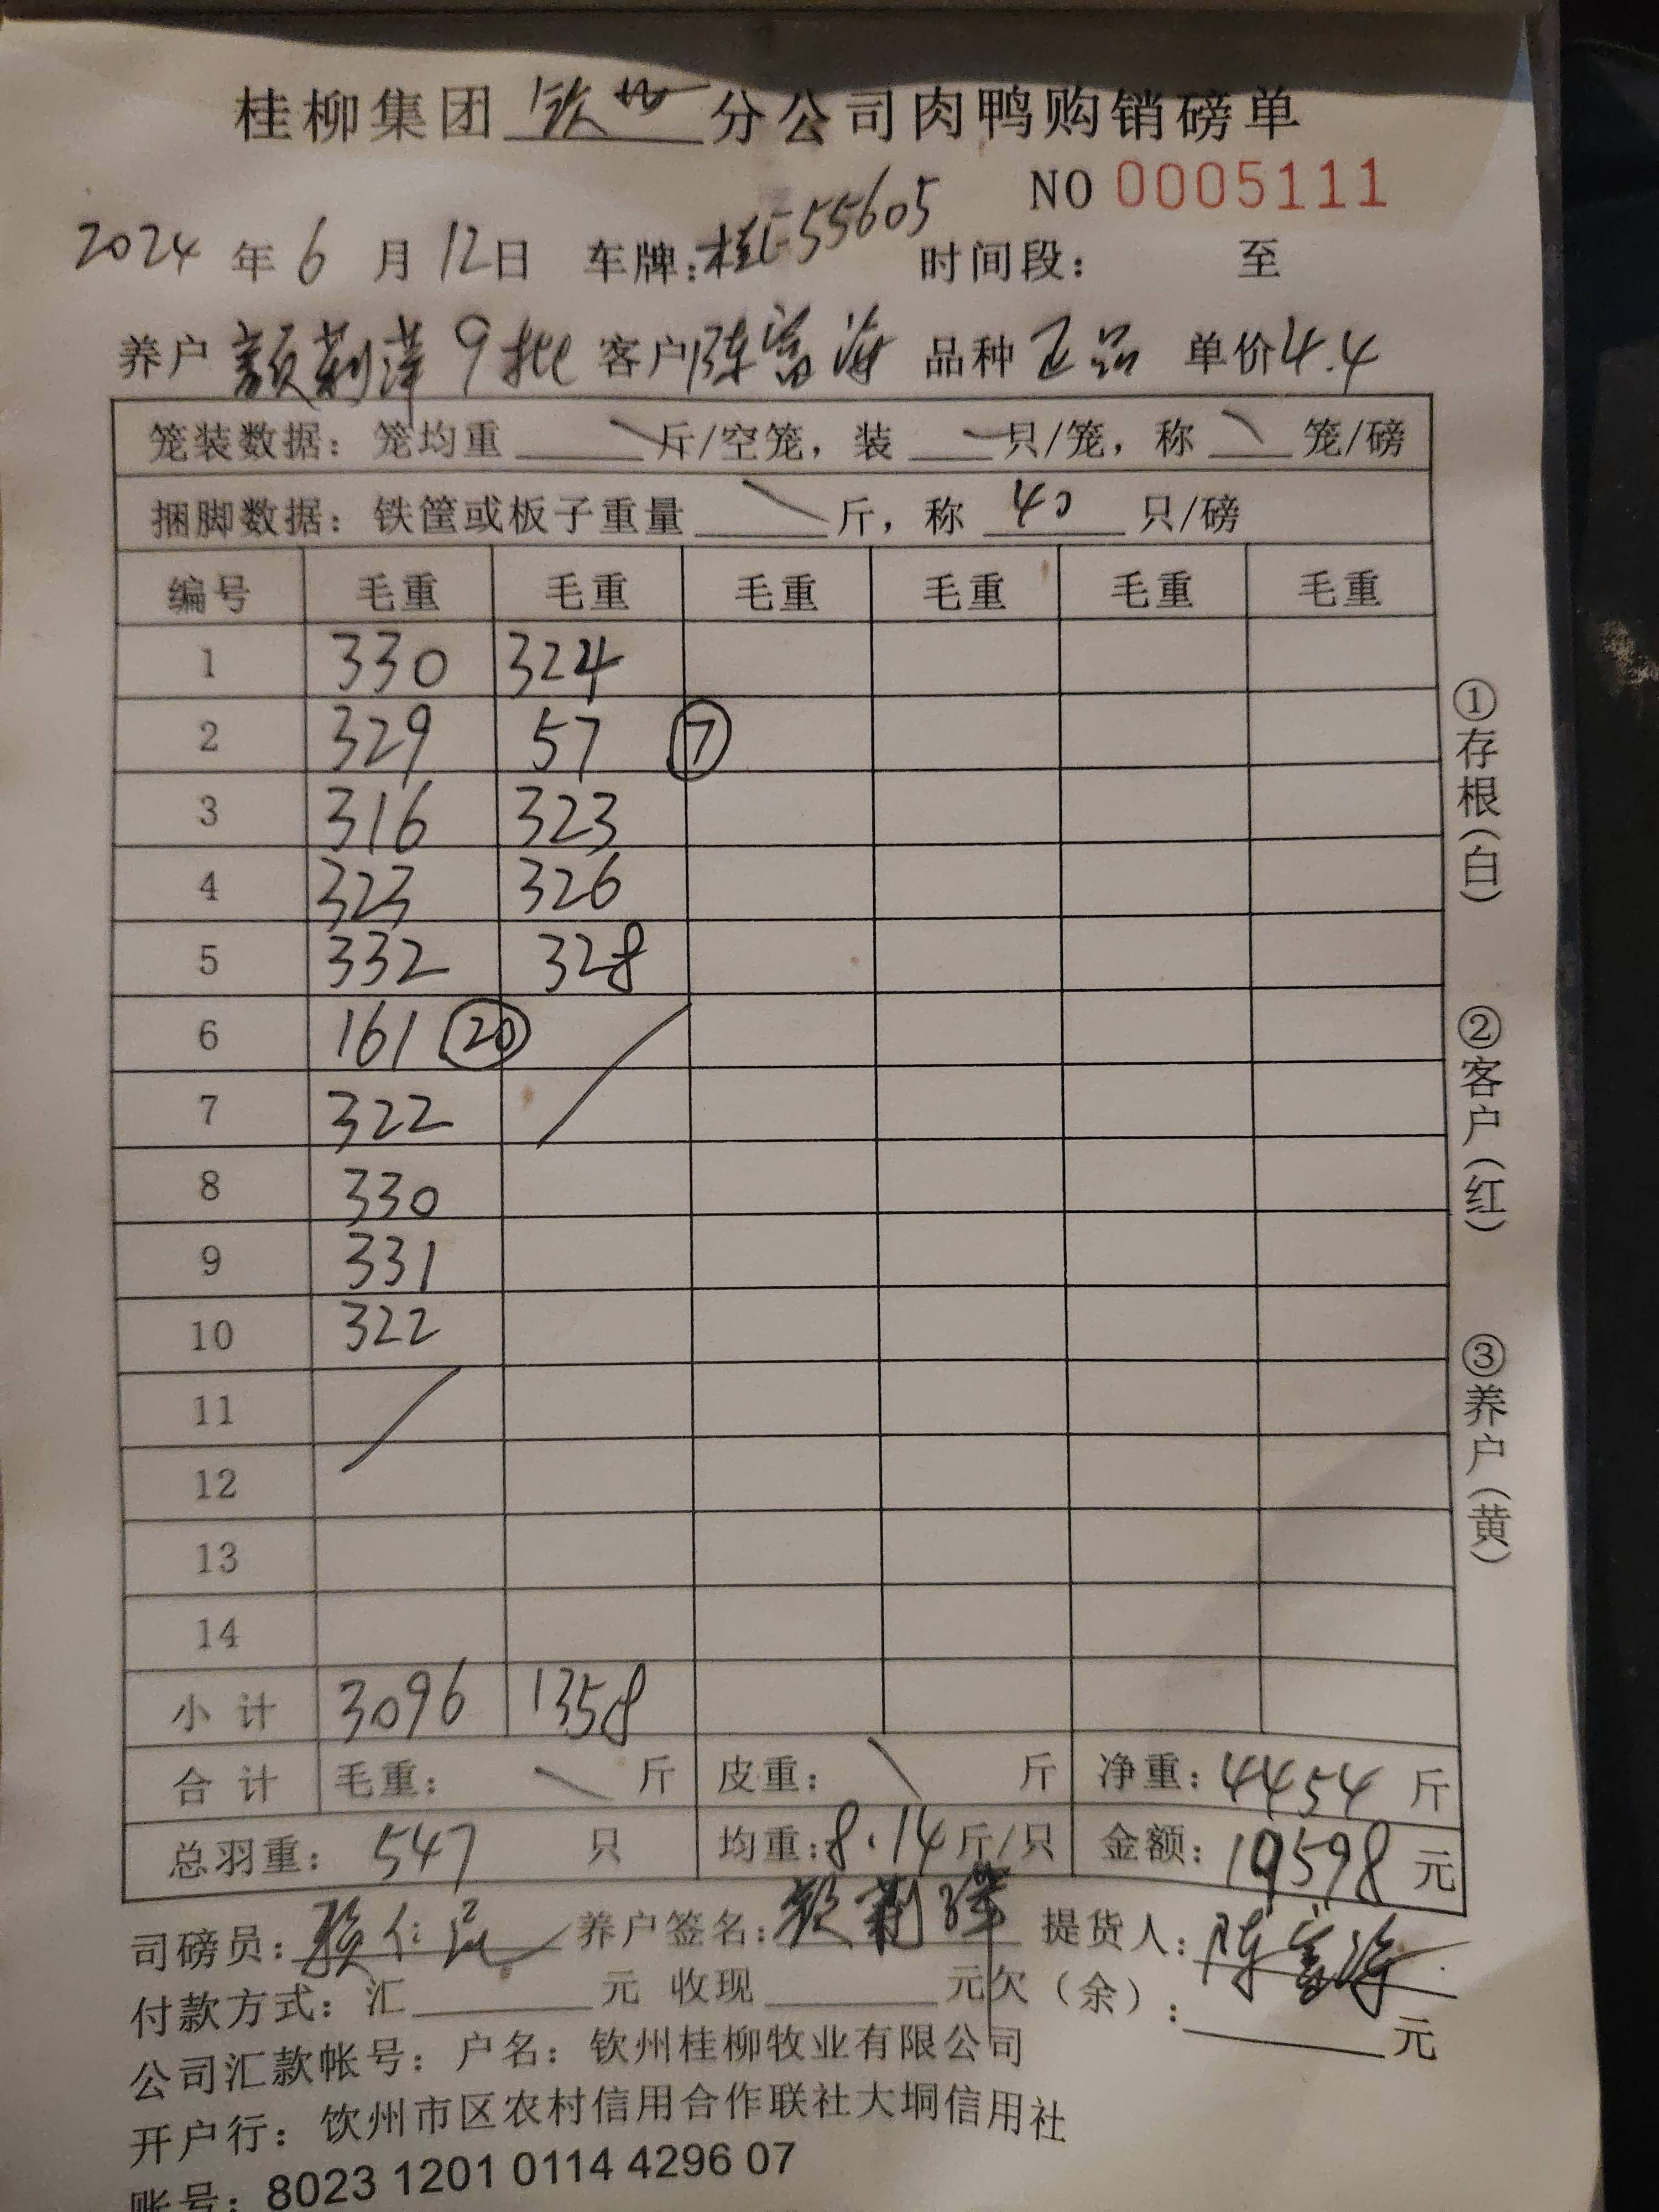 桂柳集团 钦州 分公司肉鸭购销磅单
NO 0005111
2024 年 6 月 12日 车牌:桂E55605 时间段: 至
养户 颜莉萍 9批 客户 陈富海 品种 正品 单价 4.4
笼装数据: 笼均重 \ 斤/空笼, 装 \ 只/笼, 称 \ 笼/磅
捆脚数据: 铁筐或板子重量 \ 斤, 称 40 只/磅
编号 毛重 毛重 毛重 毛重 毛重 毛重
1 330 324
2 329 57 ⑦
3 316 323
4 323 326
5 332 328
6 161 ⑳
7 322
8 330
9 331
10 322
11
12
13
14
小计 3096 1358
合计 毛重: \ 斤 皮重: \ 斤 净重: 4454 斤
总羽重: 547 只 均重: 8.14 斤/只 金额: 19598 元
司磅员: 养户签名: 颜莉萍 提货人: 陈富海
付款方式: 汇 元 收现 元欠(余): 元
公司汇款帐号: 户名: 钦州桂柳牧业有限公司
开户行: 钦州市区农村信用合作联社大垌信用社
账号: 8023 1201 0114 4296 07
①存根(白) ②客户(红) ③养户(黄)